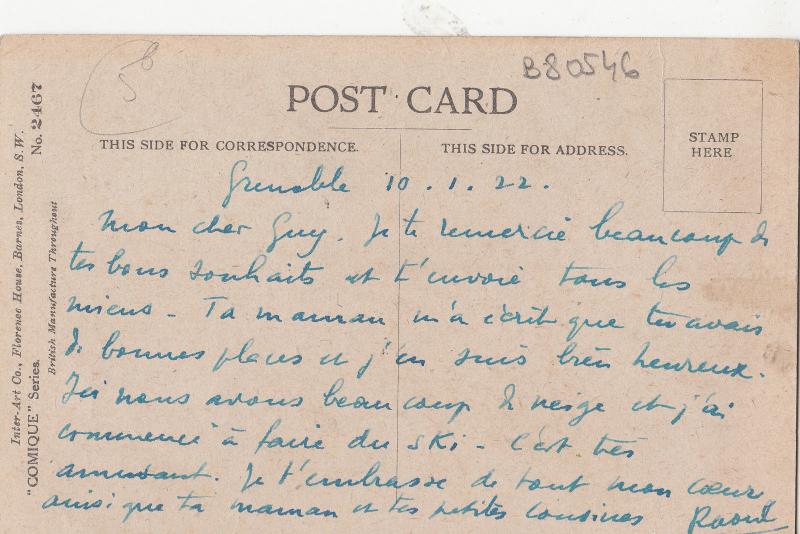 B80546
50
POST CARD
THIS SIDE FOR CORRESPONDENCE.
THIS SIDE FOR ADDRESS.
STAMP
HERE
Inter-Art Co., Florence House, Barnes, London, S.W.
"COMIQUE" Series. No. 2467
British Manufacture Throughout
Grenoble 10.1.22.
Mon cher Guy. Je te remercie beaucoup de
tes bons souhaits et t'envoie tous les
miens - Ta maman m'a écrit que tu avais
de bonnes places et j'en suis bien heureux.
Ici nous avons beaucoup de neige et j'ai
commencé à faire du ski - C'est très
amusant. Je t'embrasse de tout mon cœur
ainsi que ta maman et tes petites cousines Raoul